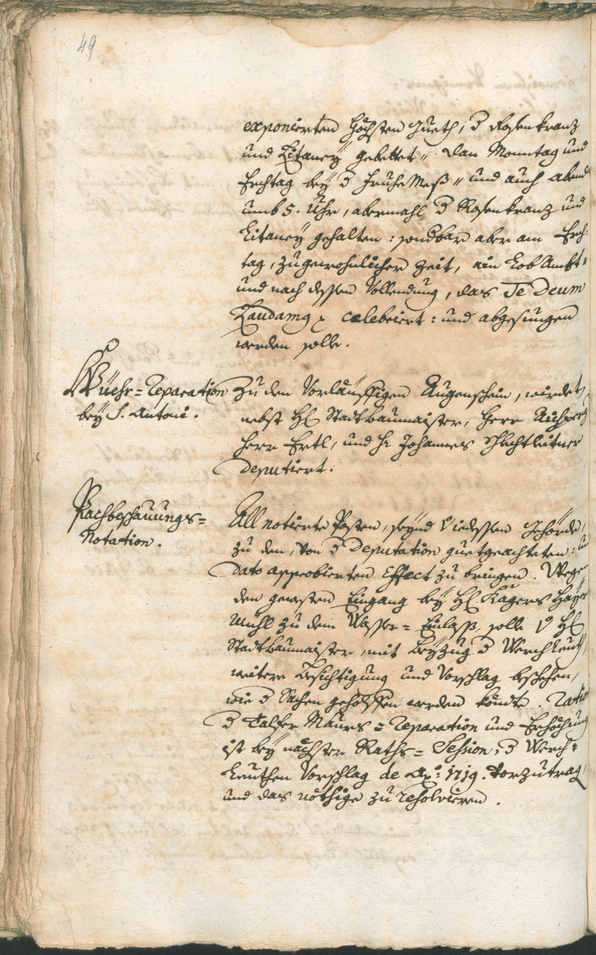 49
exponierten Höchsten Gueth, d Rosenkranz
und Litaney gebettet, dan Monntag und
Erchtag bey d Fruhe Meß, und auch abend
umb 5. Uhr, abermahl d Rosenkranz und
Litaney gehalten: sondbar aber am Erch-
tag, zu gewohnlicher Zeit, ain Lob Ambt
und nach dessen Vollendung, das Te Deum
Laudamg x celebriert: und abgesungen
werden solle.
Wüehr-Reparation
bey S. Antoni.
Zu dem Vorläuffigen Augenschein, wirdet
nebst H Stadtbaumaister, Herr
Herr Ertl, und H. Johannes Schlechtleitner
Deputiert.
Pachbeschauungs-
Notation.
All notierte Posten, seynd iedessen Behörde,
zu den, von d Deputation guetgeachteten: und
dato approbierten Effect zu bringen. Wege
den Eingang bey H Kagers
Muhl zu dem Wasser-Einlaß solle H
Stadtbaumaister, mit Beyzug d Werchleuth
weitere Besichtigung und Vorschlag beschehen,
wie d Sachen geholffen werden köndte.
d Talfer Maurs-Reparation und Erhöchung
ist bey nächster Raths-Session, d Werch-
Leuthen Vorschlag de Ao: 1719. vorzutrag
und das nöthige zu resolvieren.